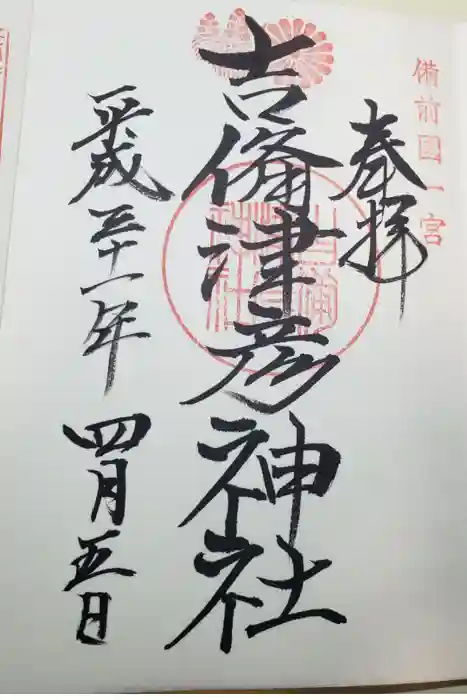 備前國一宮
奉拝
吉備津彦神社
平成三十一年
四月五日